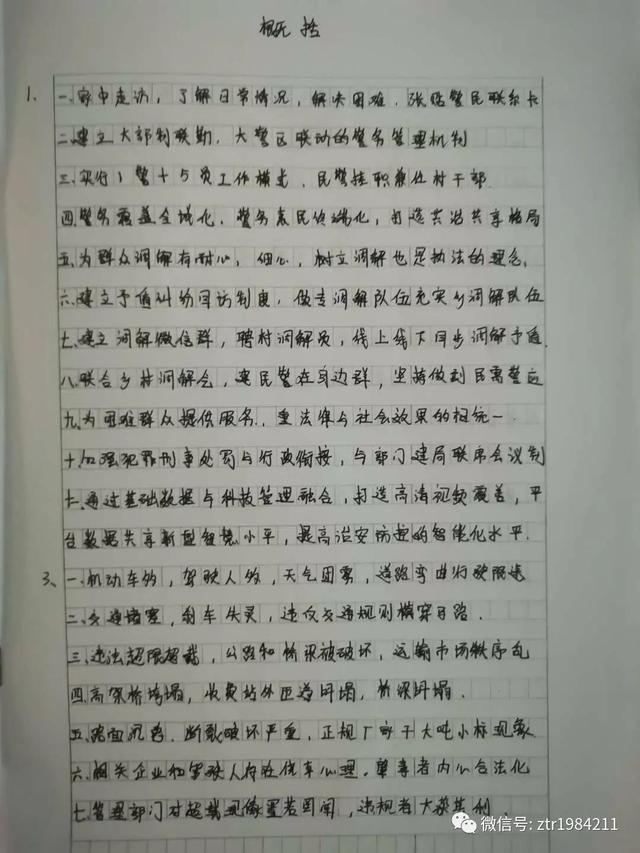 概括
1. 一.家中走访,了解日常情况,解决困难.张贴警民联系卡
二.建立大部制联勤,大警区联动的警务管理机制
三.实行1警+5员工作模式.民警挂职兼任村干部
四.警务覆盖全域化.警务亲民终端化,打造共治共享格局
五.为群众调解有耐心,细心,树立调解也是执法的理念.
六.建立矛盾纠纷回访制度,做专调解队伍充实乡调解队伍
七.建立调解微信群,聘村调解员,线上线下同步调解矛盾.
八.联合乡村调解会,建民警在身边群,坚持做到民离警应
九.为困难群众提供服务.重法律与社会效果的相统一
十.加强犯罪刑事处罚与行政衔接,与部门建局联席会议制
十二.通过基础数据与科技管理融合,打造高清视频覆盖,平
台数据共享新型智慧小平,提高治安防控的智能化水平.
3、一.机动车的,驾驶人的,天气因素,道路弯曲行驶限速
二.交通堵塞,刹车失灵,违反交通规则横穿马路.
三.违法超限超载,公路和桥梁被破坏,运输市场秩序乱
四.高架桥垮塌,收费站外匝道坍塌,桥梁坍塌.
五.路面沉陷.断裂破坏严重,正规厂家于大吨小标现象
六.相关企业和驾驶人存在侥幸心理.肇事者内心合法化
七.管理部门对超载现像置若罔闻,违规者大获其利.
微信号: ztr1984211